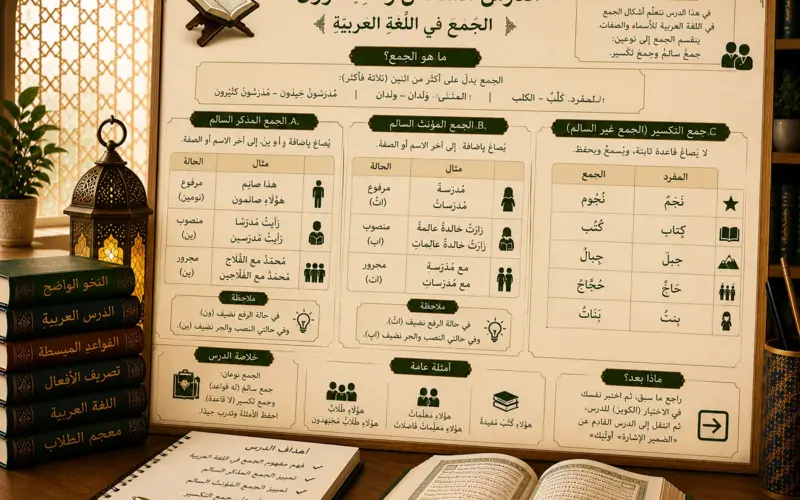 الجَمَع في اللُّغةِ العربيّةِ
في هذا الدرس نتعلّم أشكال الجمع
في اللغة العربية للأسماء والصفات.
ينقسم الجمع إلى نوعين:
جمعُ سالمٌ وجمعَ تكْسير.
ما هو الجمع؟
الجمع يدلّ على أكثر من اثنين (ثلاثة فأكثر):
كَلْبٌ – الكلب | وَلدان – ولدان | مُدَرّسُونَ جيدُون – مُدَرّسُونَ كثيُرون
A. الجمع المذكر السالم
يُصاغ بإضافة و أو ين، إلى آخر الاسم أو الصفة.
مثال
الحالة
هذا صايُم
هؤلاءِ صائمون
مرفوع
(نومين)
رأيتُ مُدَرّسًا
رأيتَ مُدرّسين
منصوب
(ين)
محُمَدٌ مع الفَّلاح
محُمَدُ مع الفَلاّحين
مجرور
(ين)
ملاحظة
في حالة الرفع نضيف (ون)
وفي حالتي النصب والجر نضيف (ين).
B. الجمع المؤنث السالم
يُصاغ بإضافة. إلى آخر الاسم أو الصفة.
مثال
الحالة
مُدَرسةٌ
مُدَرّسَاتُ
مرفوع
(اتُ)
زَارَتْ خالدةُ عالمةً
زَارَتْ خالدةُ عالماتٍ
منصوب
(اتٍ)
مع مُدَرَسةِ
مع مُدَرّسَاتٍ
مجرور
(ات)
ملاحظة
في حالة الرفع نضيف (اتُ).
وفي حالتي النصب والجر نضيف (اتٍ).
C. جمع التكسير (الجمع غير السالم)
لا يَصاغُ قاعدة ثابتة، ويُسمعُ ويحفظ.
المفرد
الجمع
نَجَمٌ
نُجُوم
كِتاب
كُتُب
جبلَ
جِبالُ
حَاجٌ
حُجَّاجٌ
بِنتُ
بَنَاتٌ
خلاصة الدرس
الجمع نوعان:
جمع سالمٌ (له قواعد)
وجمع تكسير (لا قاعدة).
احفظ الأمثلة وتدرب جيدًا.
أمثلة عامة
هؤلاءِ طُلّابٌ
هؤلاءِ طُلّابٌ مُجْتهدون
هؤلاءِ مُعَلّماتُ
هؤلاءِ مُعَلّمات فاضلاتُ
هؤلاءِ كُتُبٌ مفيدةُ
ماذا بعد؟
راجع ما سبق، ثم اختبر نفسك
في الاختبار (الكويز) للدرس،
ثم انتقل إلى الدرس القادم عن
«الضمير الإشارة» أولَئِكَ»
النحو الواضح
الدرس العربية
القواعد المبسطة
تصريف الأفعال
اللغة العربية
معجم الطلاب
أهداف الدرس
فهم مفهوم الجمع في اللغة العربية
تمييز الجمع المذكر السالم
تمييز الجمع المؤنث السالم
جمع التكسير